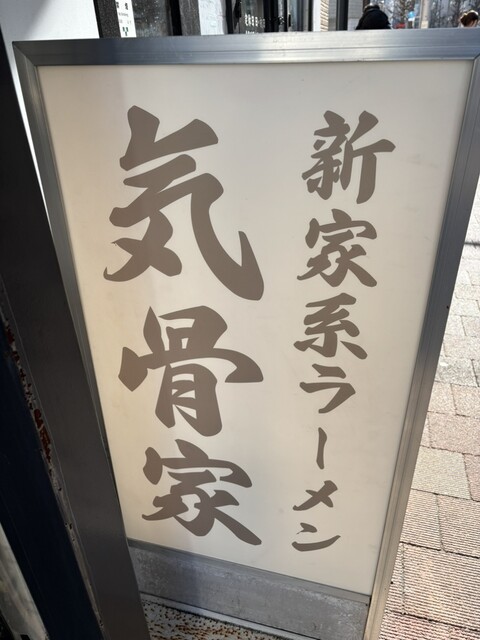 新家系ラーメン
気骨家